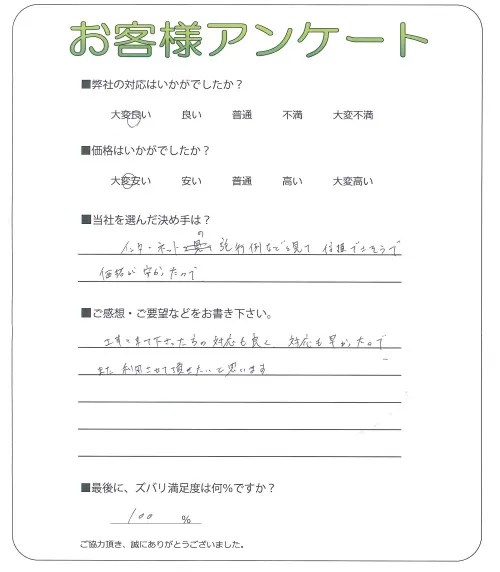 お客様アンケート
■弊社の対応はいかがでしたか？
大変良い 良い 普通 不満 大変不満
■価格はいかがでしたか？
大変安い 安い 普通 高い 大変高い
■当社を選んだ決め手は？
インターネットの施行例などを見て 信頼できそうで
価格が安かったので
■ご感想・ご要望などをお書き下さい。
工事に来て下さった方の対応も良く 対応も早かったので
また利用させて頂きたいと思います
■最後に、ズバリ満足度は何％ですか？
100 ％
ご協力頂き、誠にありがとうございました。